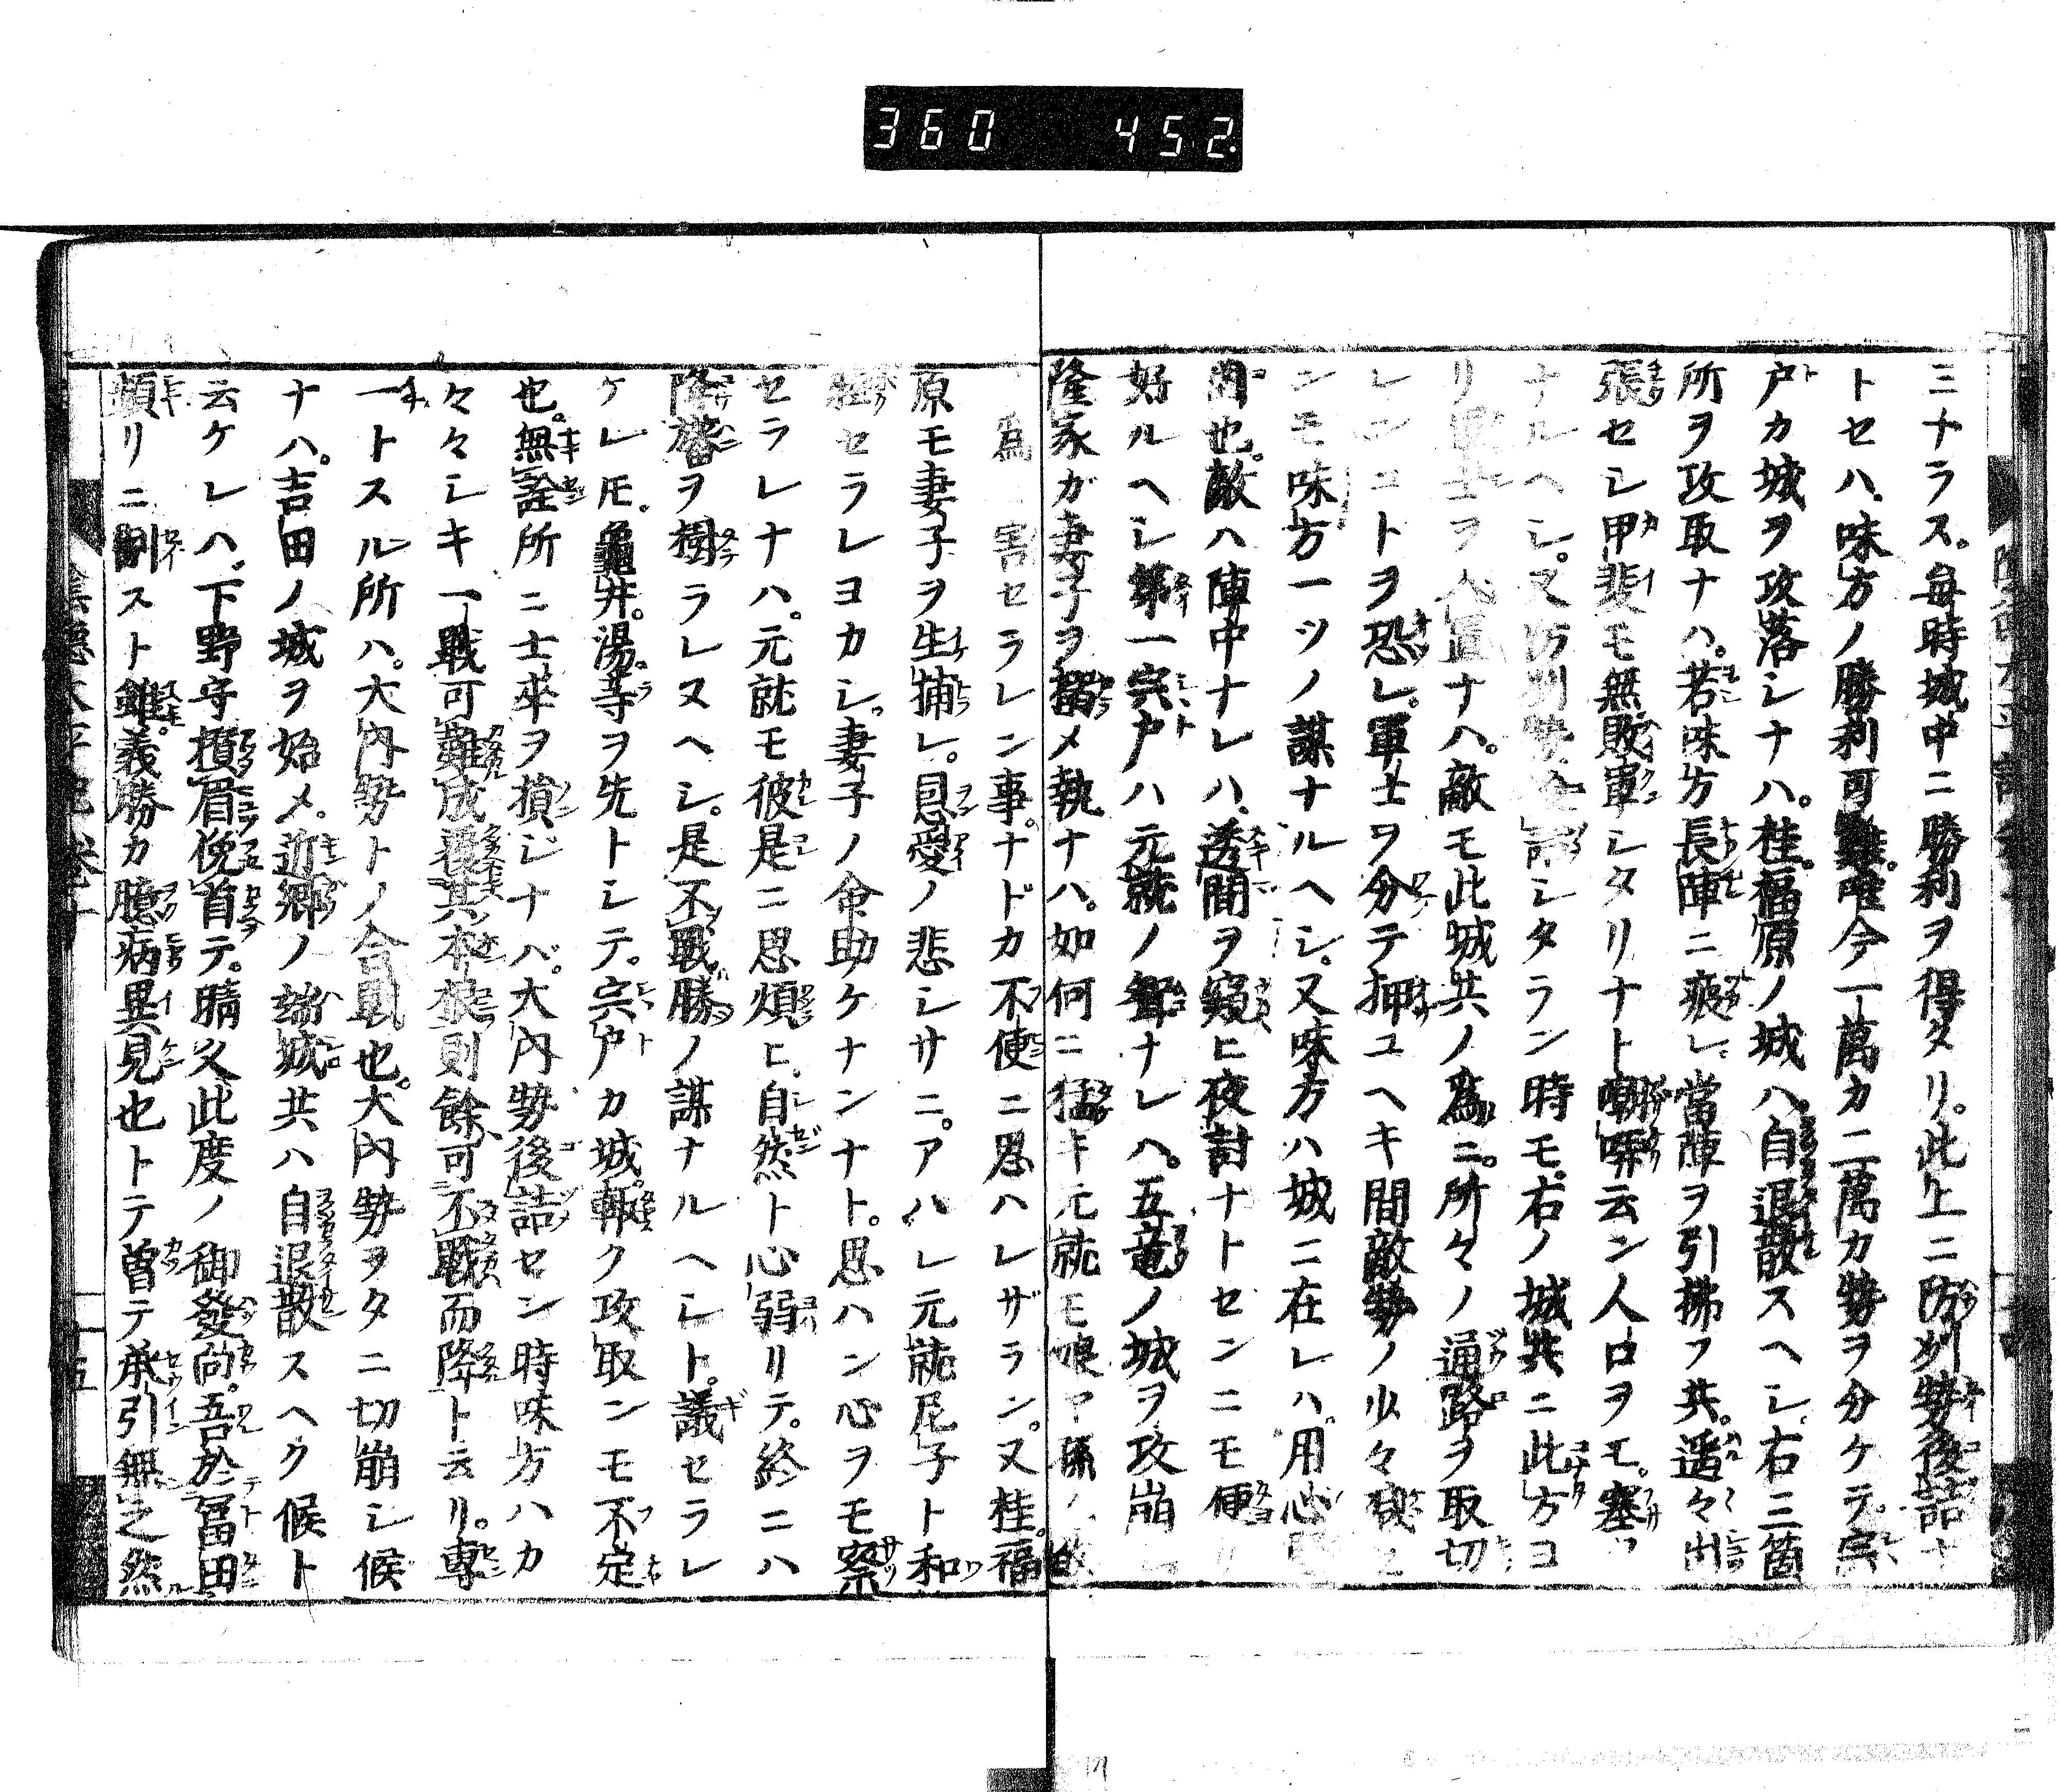 360 452
三ナラス。毎時城中ニ勝利ヲ得タリ。此上ニ防州勢後詰ナ
トセハ。味方ノ勝利可難。唯今一萬カ二萬カ勢ヲ分ケテ。宍
戸カ城ヲ攻落シナハ。桂。福原ノ城ハ。自退散スヘシ。右三箇
所ヲ攻取ナハ。若味方長陣ニ疲レ。當陣ヲ引拂フ共。遥々出
張セシ甲斐モ無。敗軍シタリナト嘲哢云ン人口ヲモ。塞
ナルヘシ。又防州勢後詰シタラン時モ。右ノ城共ニ此方ヨ
リ軍士ヲ入置ナハ。敵モ此城共ノ為ニ。所々ノ通路ヲ取切
レンコトヲ恐レ。軍士ヲ分テ押ユヘキ間敵勢ノ少々
ンモ味方一ツノ謀ナルヘシ。又味方ハ城ニ在レハ。用心
固也。敵ハ陣中ナレハ、透間ヲ窺ヒ夜討ナトセンニモ便
好ルヘシ第一宍戸ハ元就ノ聟ナレハ。五竜ノ城ヲ攻崩
隆家ガ妻子ヲ搦メ執ナハ。如何ニ猛キ元就モ娘ヤ孫ノ
為害セラレン事。ナドカ不便ニ思ハレザラン。又桂。福
原モ妻子ヲ生捕レ。恩愛ノ悲シサニ。アハレ元就尼子ト和
セラレヨカシ。妻子ノ命助ケナンナト。思ハン心ヲモ察
セラレナハ。元就モ彼是ニ思煩ヒ、自然ト心弱リテ。終ニハ
降旛ヲ樹ラレヌヘシ。是不戦。勝ノ謀ナルヘシト。議セラレ
ケレ𪜈。龜井。湯。等ヲ先トシテ。宍戸カ城。輙ク攻取ンモ不定
也。無詮所ニ士卒ヲ損ジナバ。大内勢後詰セン時味方ハカ
々々シキ一戦可難成。覆其本根則餘可不戦而降ト云リ。専
一トスル所ハ。大内勢トノ合戦也。大内勢ヲタニ切崩シ候
ナハ。吉田ノ城ヲ始メ。近郷ノ端城共ハ自退散スヘク候ト
云ケレハ、下野守攅眉俛首テ。晴久此度ノ御發向。吾於冨田
頻リニ制スト雖。義勝カ臆病異見也トテ曽テ承引無之然
五